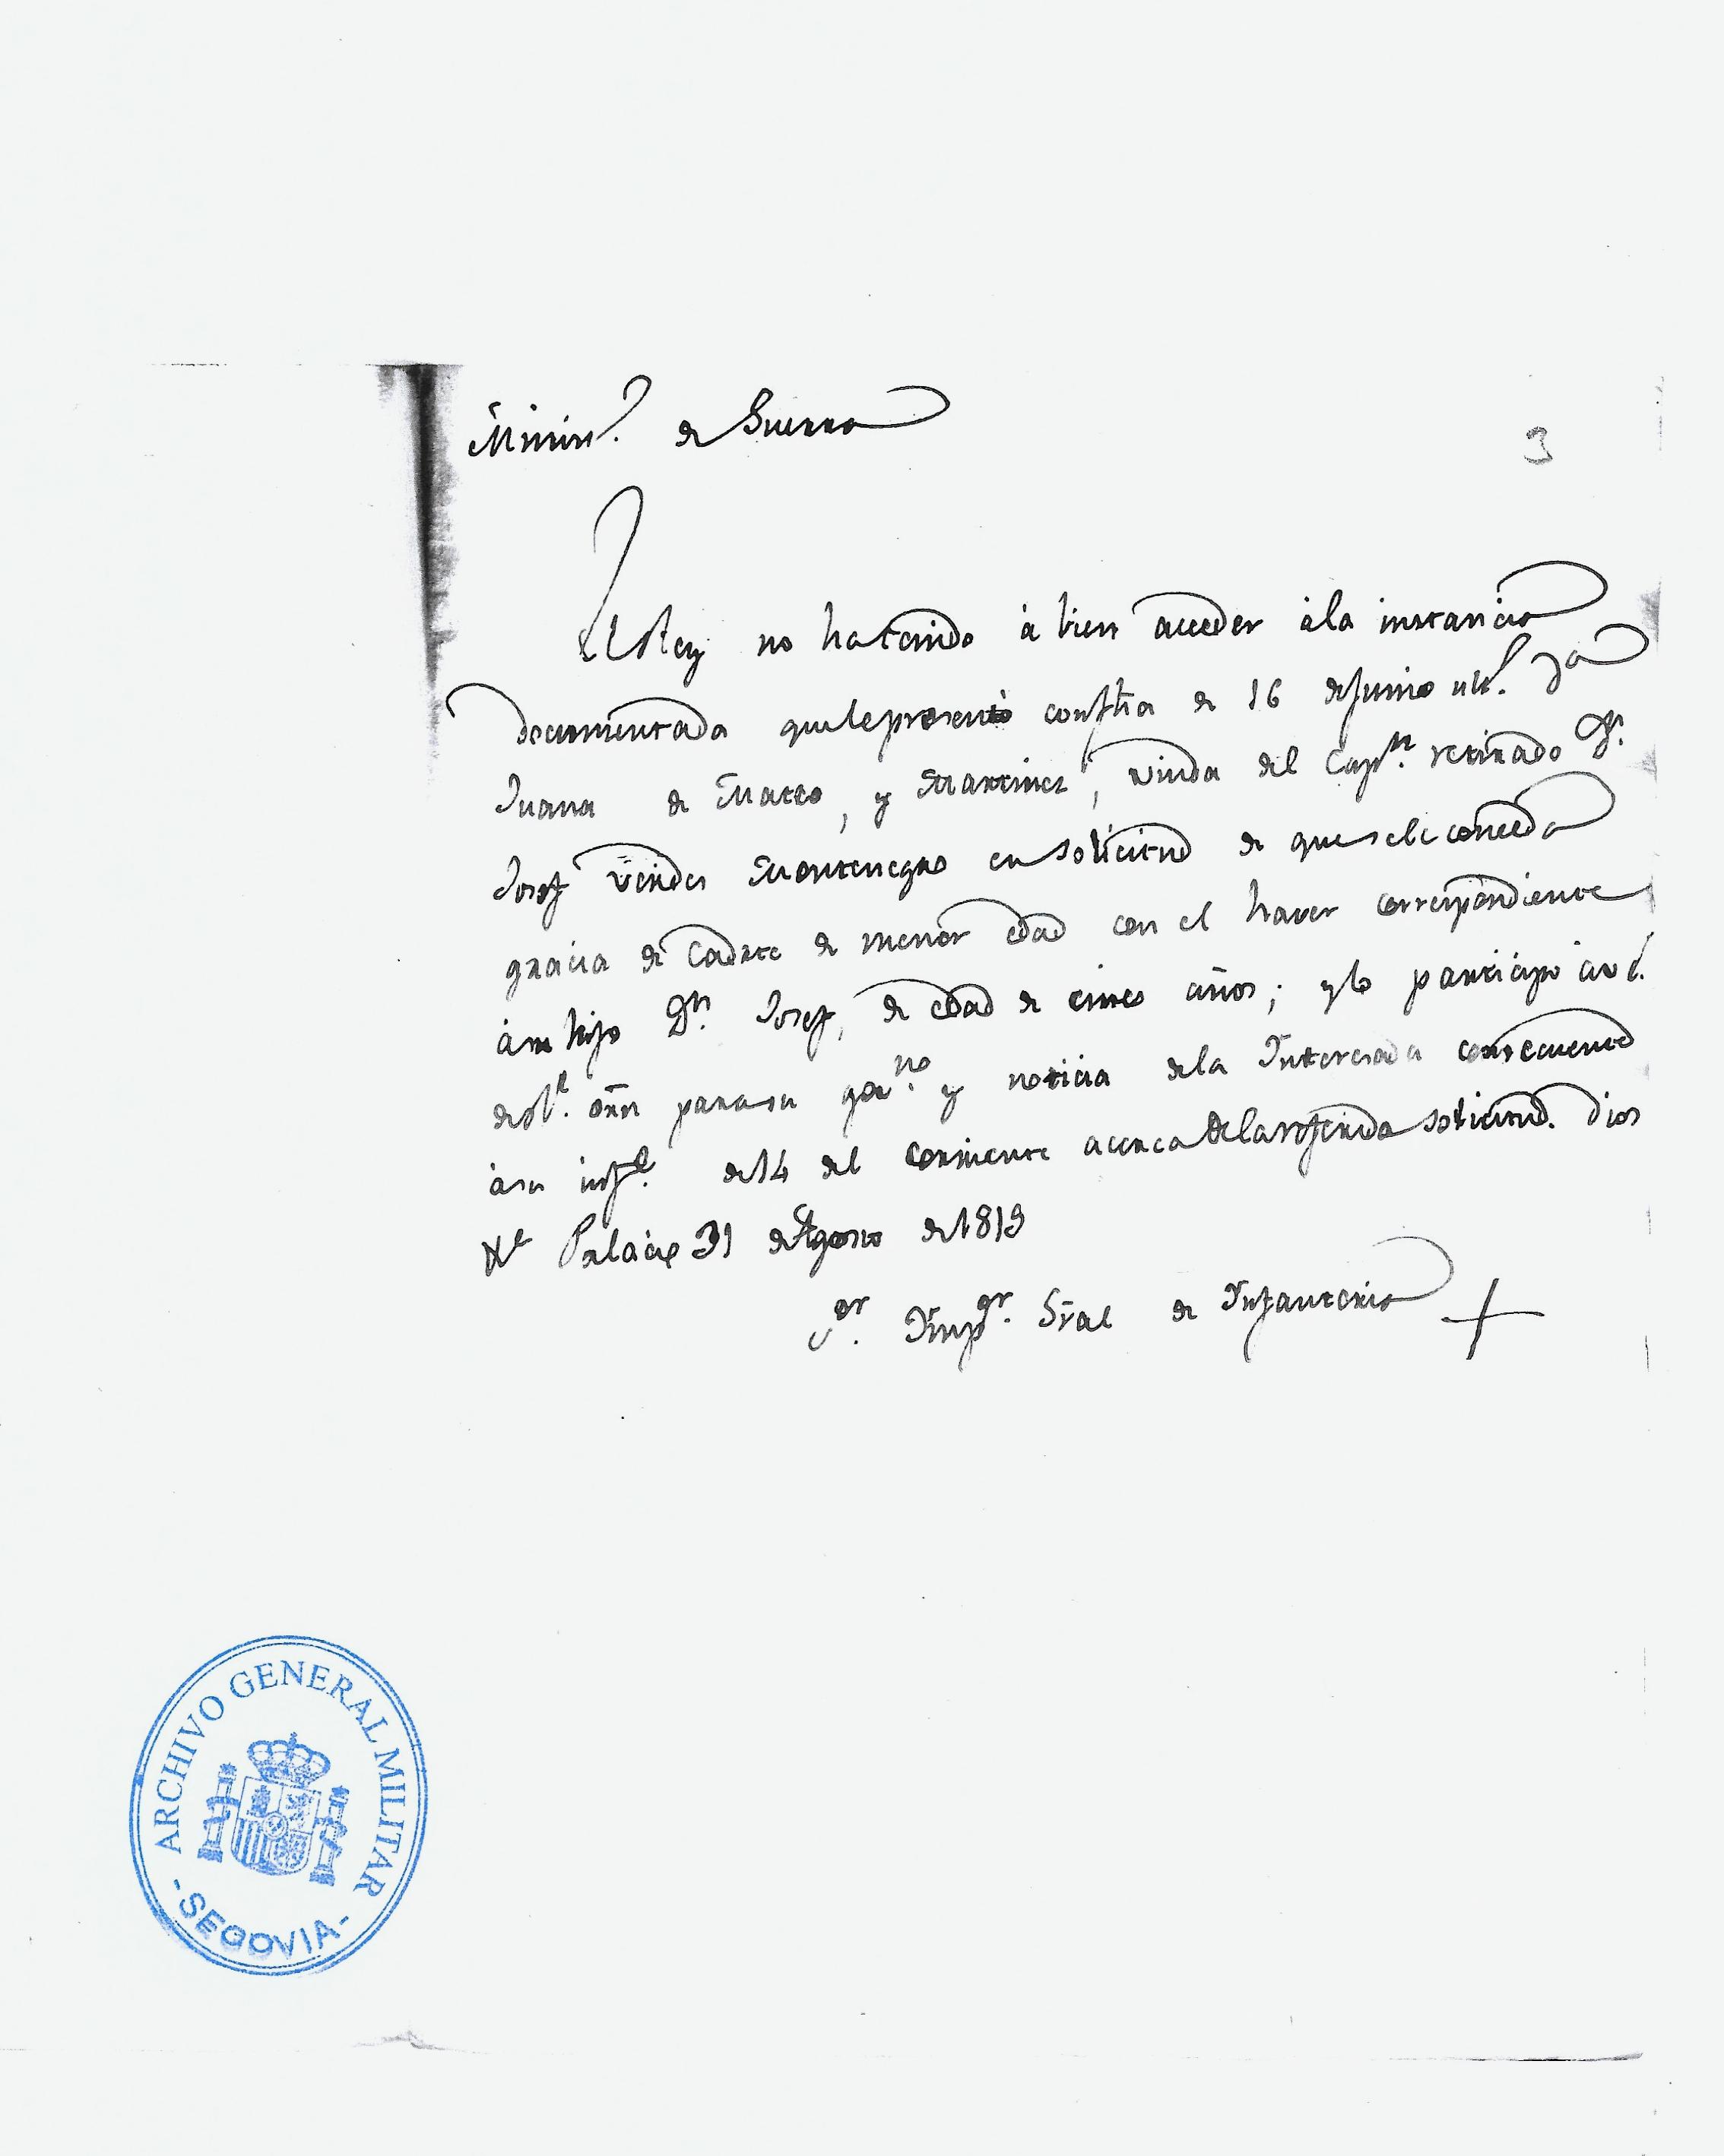 Minist.º de Guerra
3
El Rey no ha tenido á bien acceder á la instancia
documentada que le presentó con fha de 16 de Junio ult.º D.ª
Juana de Mateo, y Martinez, viuda del Cap.n retirado D.n
Josef Montenegro en solicitud de que se le conceda
gracia de Cadete de menor edad con el haver correspondiente
á su hijo D.n Josef, de edad de cinco años; y lo participo á V.E.
de R.l orñ para su gov.no y noticia de la Interesada consecuente
á su inf.e de 14 del corriente acerca de la referida solicitud. Dios
&.e Palacio 31 de Agosto de 1819
S.or Insp.or Gral de Infanteria
ARCHIVO GENERAL MILITAR
- SEGOVIA -